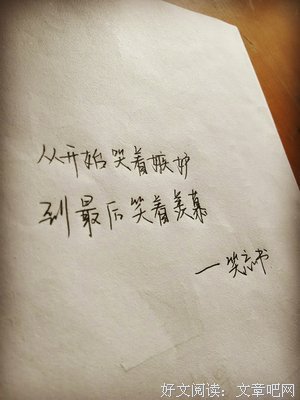 从开始哭着嫉妒
到最后笑着羡慕
一笑忘书
好文阅读:文章吧网